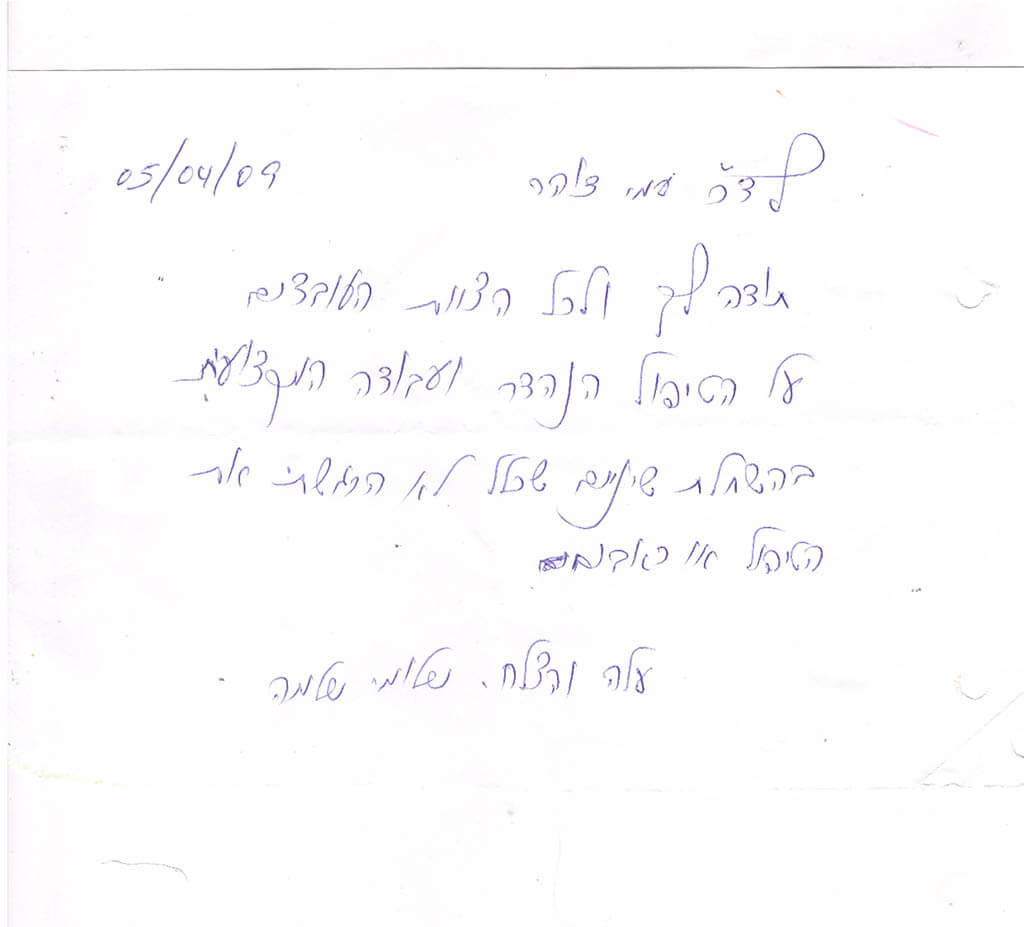 05/04/09
לד"ר עמי צוהר
תודה לך ולכל הצוות העובדים
על הטיפול הנהדר ועבודה המקצועית
בהשתלת שיניים שכלל לא הרגשתי את
הטיפול או כאבים
עלה והצלח.